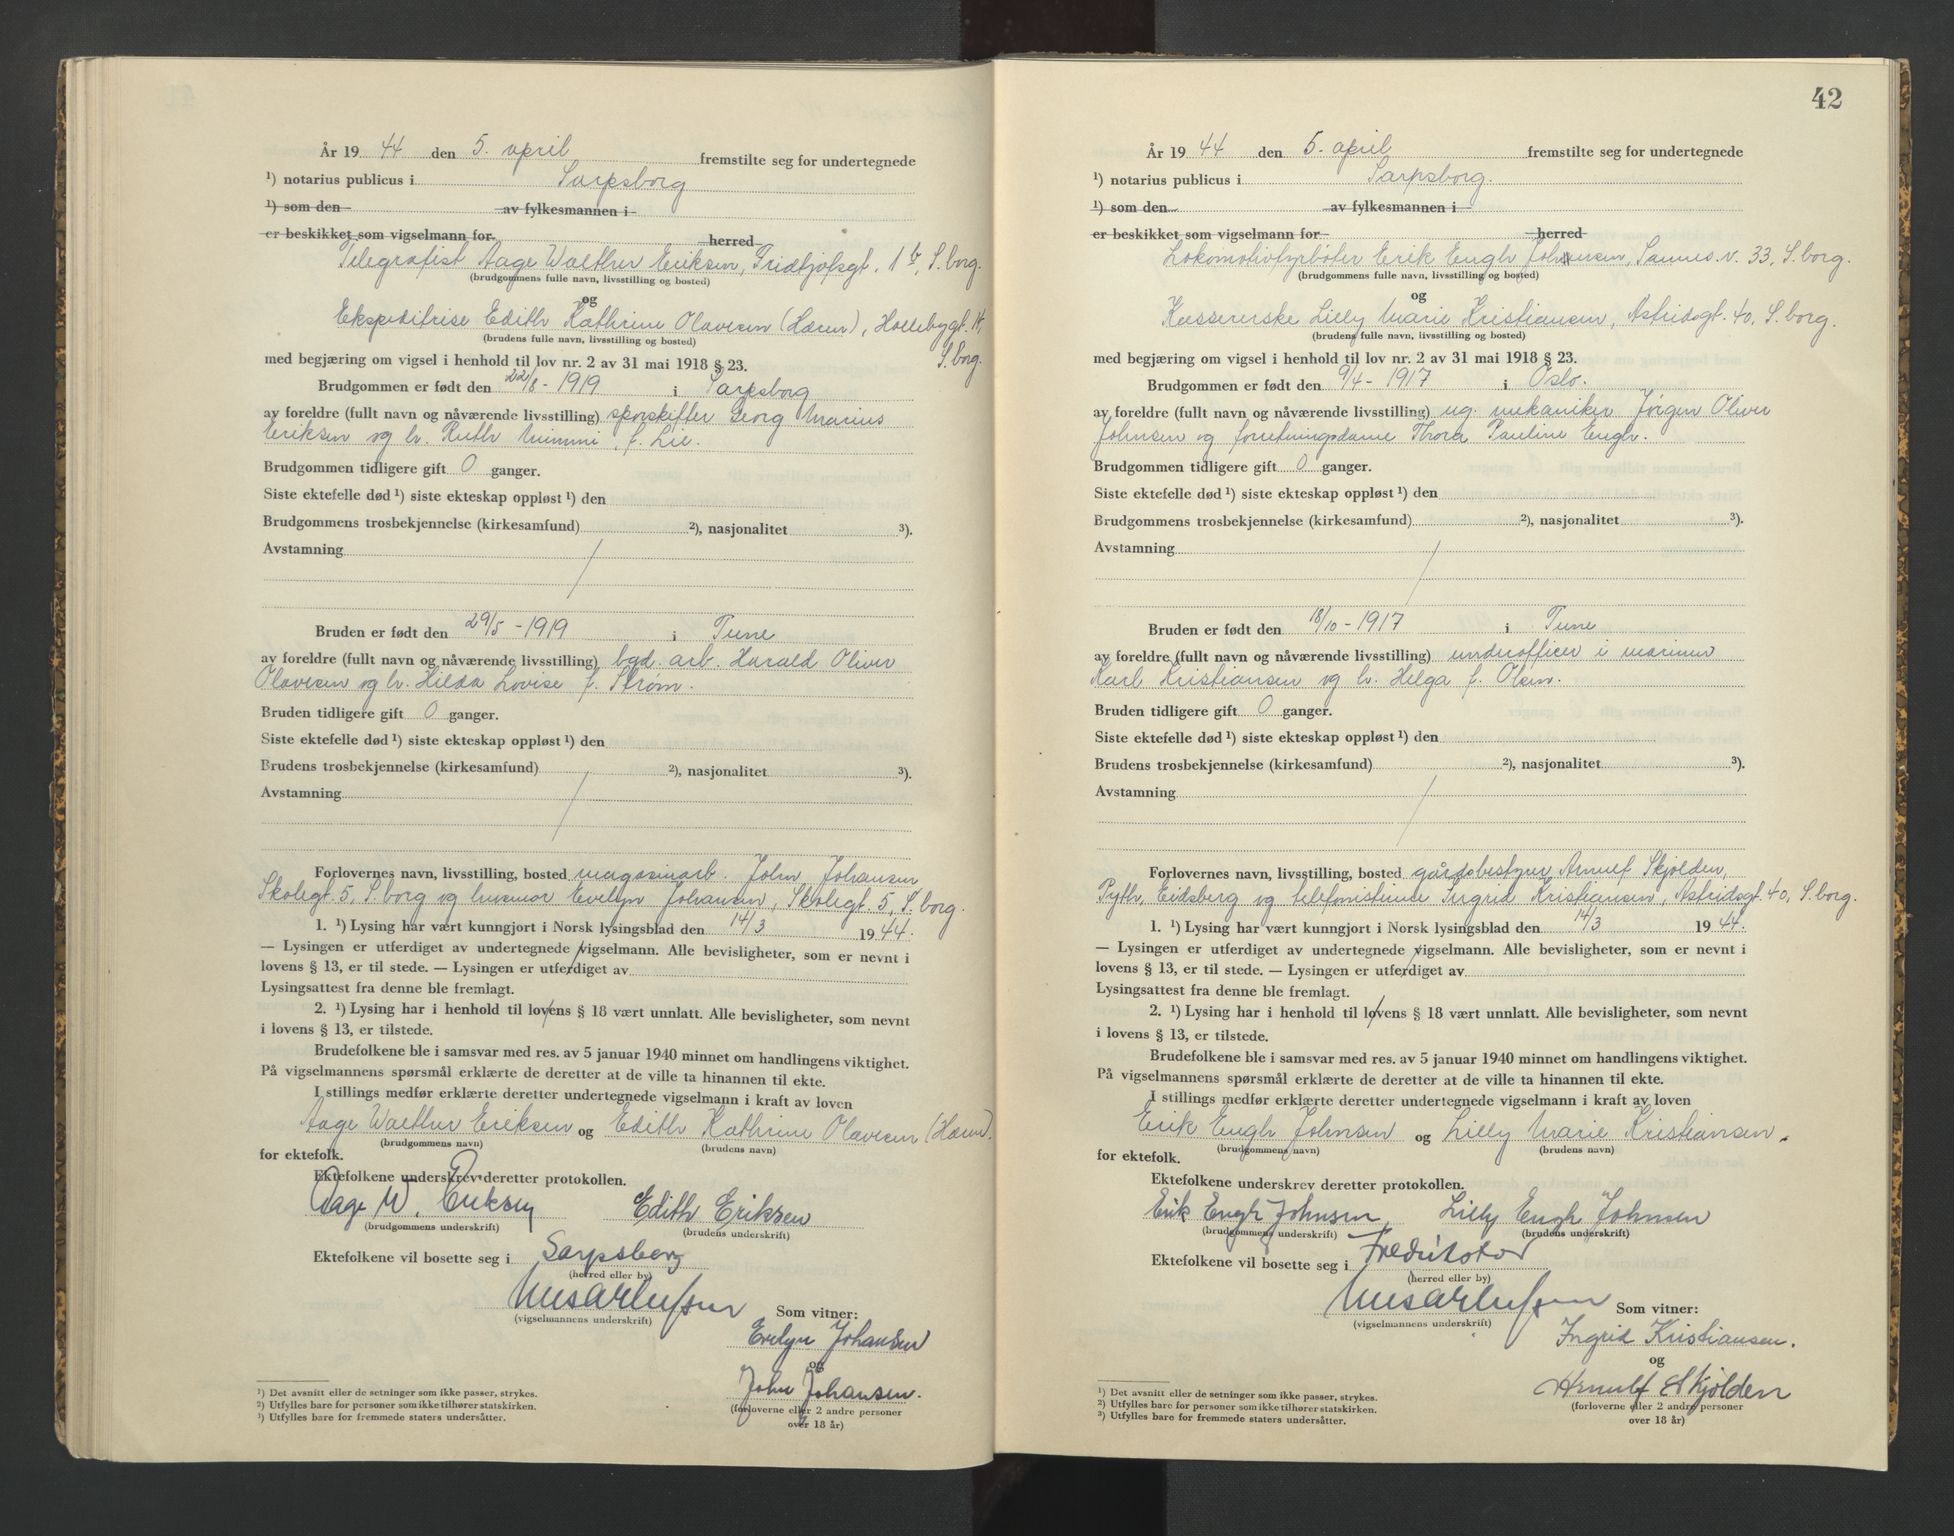 År 19 44 den 5. april fremstilte seg for undertegnede
¹) notarius publicus i Sarpsborg
¹) som den av fylkesmannen i
er beskikket som vigselmann for herred
Telegrafist Aage Walther Eriksen, Fridtjofsgt. 1 b, S.borg.
(brudgommens fulle navn, livsstilling og bosted)
og
Ekspeditrise Edith Kathrine Olavesen (Hæren), Hollebygt. 14,
S.borg.
(brudens fulle navn, livsstilling og bosted)
med begjæring om vigsel i henhold til lov nr. 2 av 31 mai 1918 § 23.
Brudgommen er født den 22/8 - 1919 i Sarpsborg
av foreldre (fullt navn og nåværende livsstilling) sporskifter Georg Marius
Eriksen og h. Ruth Mimmi, f. Lie.
Brudgommen tidligere gift 0 ganger.
Siste ektefelle død ¹) siste ekteskap oppløst ¹) den
Brudgommens trosbekjennelse (kirkesamfund) ²), nasjonalitet ³).
Avstamning
Bruden er født den 29/5 - 1919 i Tune
av foreldre (fullt navn og nåværende livsstilling) bgd. arb. Harald Oliver
Olavesen og h. Hilda Lovise f. Strøm.
Bruden tidligere gift 0 ganger.
Siste ektefelle død ¹) siste ekteskap oppløst ¹) den
Brudens trosbekjennelse (kirkesamfund) ²), nasjonalitet ³).
Avstamning
Forlovernes navn, livsstilling, bosted magasinarb. John Johansen
Skolegt. 5, S.borg og husmor Evelyn Johansen, Skolegt. 5, S.borg.
1. ¹) Lysing har vært kunngjort i Norsk lysingsblad den 14/3 19 44.
— Lysingen er utferdiget av undertegnede vigselmann. Alle bevisligheter, som er nevnt i
lovens § 13, er til stede. — Lysingen er utferdiget av
Lysingsattest fra denne ble fremlagt.
2. ¹) Lysing har i henhold til lovens § 18 vært unnlatt. Alle bevisligheter, som nevnt
i lovens § 13, er tilstede.
Brudefolkene ble i samsvar med res. av 5 januar 1940 minnet om handlingens viktighet.
På vigselmannens spørsmål erklærte de deretter at de ville ta hinannen til ekte.
I stillings medfør erklærte deretter undertegnede vigselmann i kraft av loven
Aage Walther Eriksen og Edith Kathrine Olavesen (Hæren).
(brudgommens navn) (brudens navn)
for ektefolk.
Ektefolkene underskrev deretter protokollen.
Aage W. Eriksen Edith Eriksen
(brudgommens underskrift) (brudens underskrift)
Ektefolkene vil bosette seg i Sarpsborg
(herred eller by)
(vigselmannens underskrift)
Som vitner:
Evelyn Johansen
og
John Johansen.
(forloverne eller 2 andre personer
over 18 år)
¹) Det avsnitt eller de setninger som ikke passer, strykes.
²) Utfylles bare for personer som ikke tilhører statskirken.
³) Utfylles bare for fremmede staters undersåtter.
42
År 19 44 den 5. april fremstilte seg for undertegnede
¹) notarius publicus i Sarpsborg.
¹) som den av fylkesmannen i
er beskikket som vigselmann for herred
Lokomotivfyrbøter Erik Engh Johnsen, Sannes.v. 33, S.borg.
(brudgommens fulle navn, livsstilling og bosted)
og
Kassererske Lilly Marie Kristiansen, Astridsgt. 40, S.borg.
(brudens fulle navn, livsstilling og bosted)
med begjæring om vigsel i henhold til lov nr. 2 av 31 mai 1918 § 23.
Brudgommen er født den 9/4 - 1917 i Oslo.
av foreldre (fullt navn og nåværende livsstilling) ug. mekaniker Jørgen Oliver
Johnsen og forretningsdame Thora Pauline Engh.
Brudgommen tidligere gift 0 ganger.
Siste ektefelle død ¹) siste ekteskap oppløst ¹) den
Brudgommens trosbekjennelse (kirkesamfund) ²), nasjonalitet ³).
Avstamning
Bruden er født den 18/10 - 1917 i Tune
av foreldre (fullt navn og nåværende livsstilling) underofficer i marinen
Karl Kristiansen og h. Helga f. Olsen.
Bruden tidligere gift 0 ganger.
Siste ektefelle død ¹) siste ekteskap oppløst ¹) den
Brudens trosbekjennelse (kirkesamfund) ²), nasjonalitet ³).
Avstamning
Forlovernes navn, livsstilling, bosted gårdsbestyrer Arnulf Skjolden,
Eidsberg og telefonistinde Ingrid Kristiansen, Astridsgt. 40, S.borg.
1. ¹) Lysing har vært kunngjort i Norsk lysingsblad den 14/3 19 44.
— Lysingen er utferdiget av undertegnede vigselmann. Alle bevisligheter, som er nevnt i
lovens § 13, er til stede. — Lysingen er utferdiget av
Lysingsattest fra denne ble fremlagt.
2. ¹) Lysing har i henhold til lovens § 18 vært unnlatt. Alle bevisligheter, som nevnt
i lovens § 13, er tilstede.
Brudefolkene ble i samsvar med res. av 5 januar 1940 minnet om handlingens viktighet.
På vigselmannens spørsmål erklærte de deretter at de ville ta hinannen til ekte.
I stillings medfør erklærte deretter undertegnede vigselmann i kraft av loven
Erik Engh Johnsen og Lilly Marie Kristiansen.
(brudgommens navn) (brudens navn)
for ektefolk.
Ektefolkene underskrev deretter protokollen.
Erik Engh Johnsen Lilly Engh Johnsen
(brudgommens underskrift) (brudens underskrift)
Ektefolkene vil bosette seg i Fredrikstad
(herred eller by)
(vigselmannens underskrift)
Som vitner:
Ingrid Kristiansen.
og
Arnulf Skjolden
(forloverne eller 2 andre personer
over 18 år)
¹) Det avsnitt eller de setninger som ikke passer, strykes.
²) Utfylles bare for personer som ikke tilhører statskirken.
³) Utfylles bare for fremmede staters undersåtter.